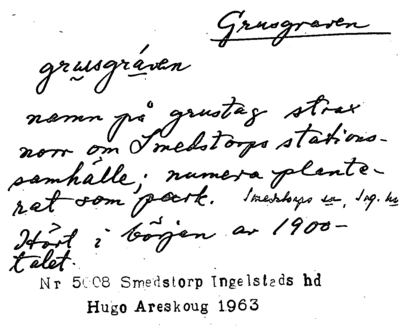 Grusgraven
grusgráven
namn på grustag strax
norr om Smedstorps stations-
samhälle; numera plante-
rat som park. Smedstorps sn, Ing. hd
Hört i början av 1900-
talet.
Nr 5008 Smedstorp Ingelstads hd
Hugo Areskoug 1963